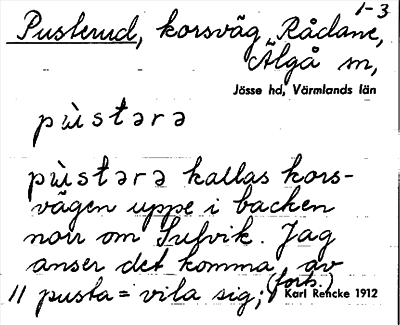 1-3
Pusterud, korsväg, Rådane,
Älgå sn,
Jösse hd, Värmlands län
pùstərə
pùstərə kallas kors-
vägen uppe i backen
norr om Sulvik. Jag
anser det komma av
// pusta = vila sig; (forts.) Karl Rencke 1912